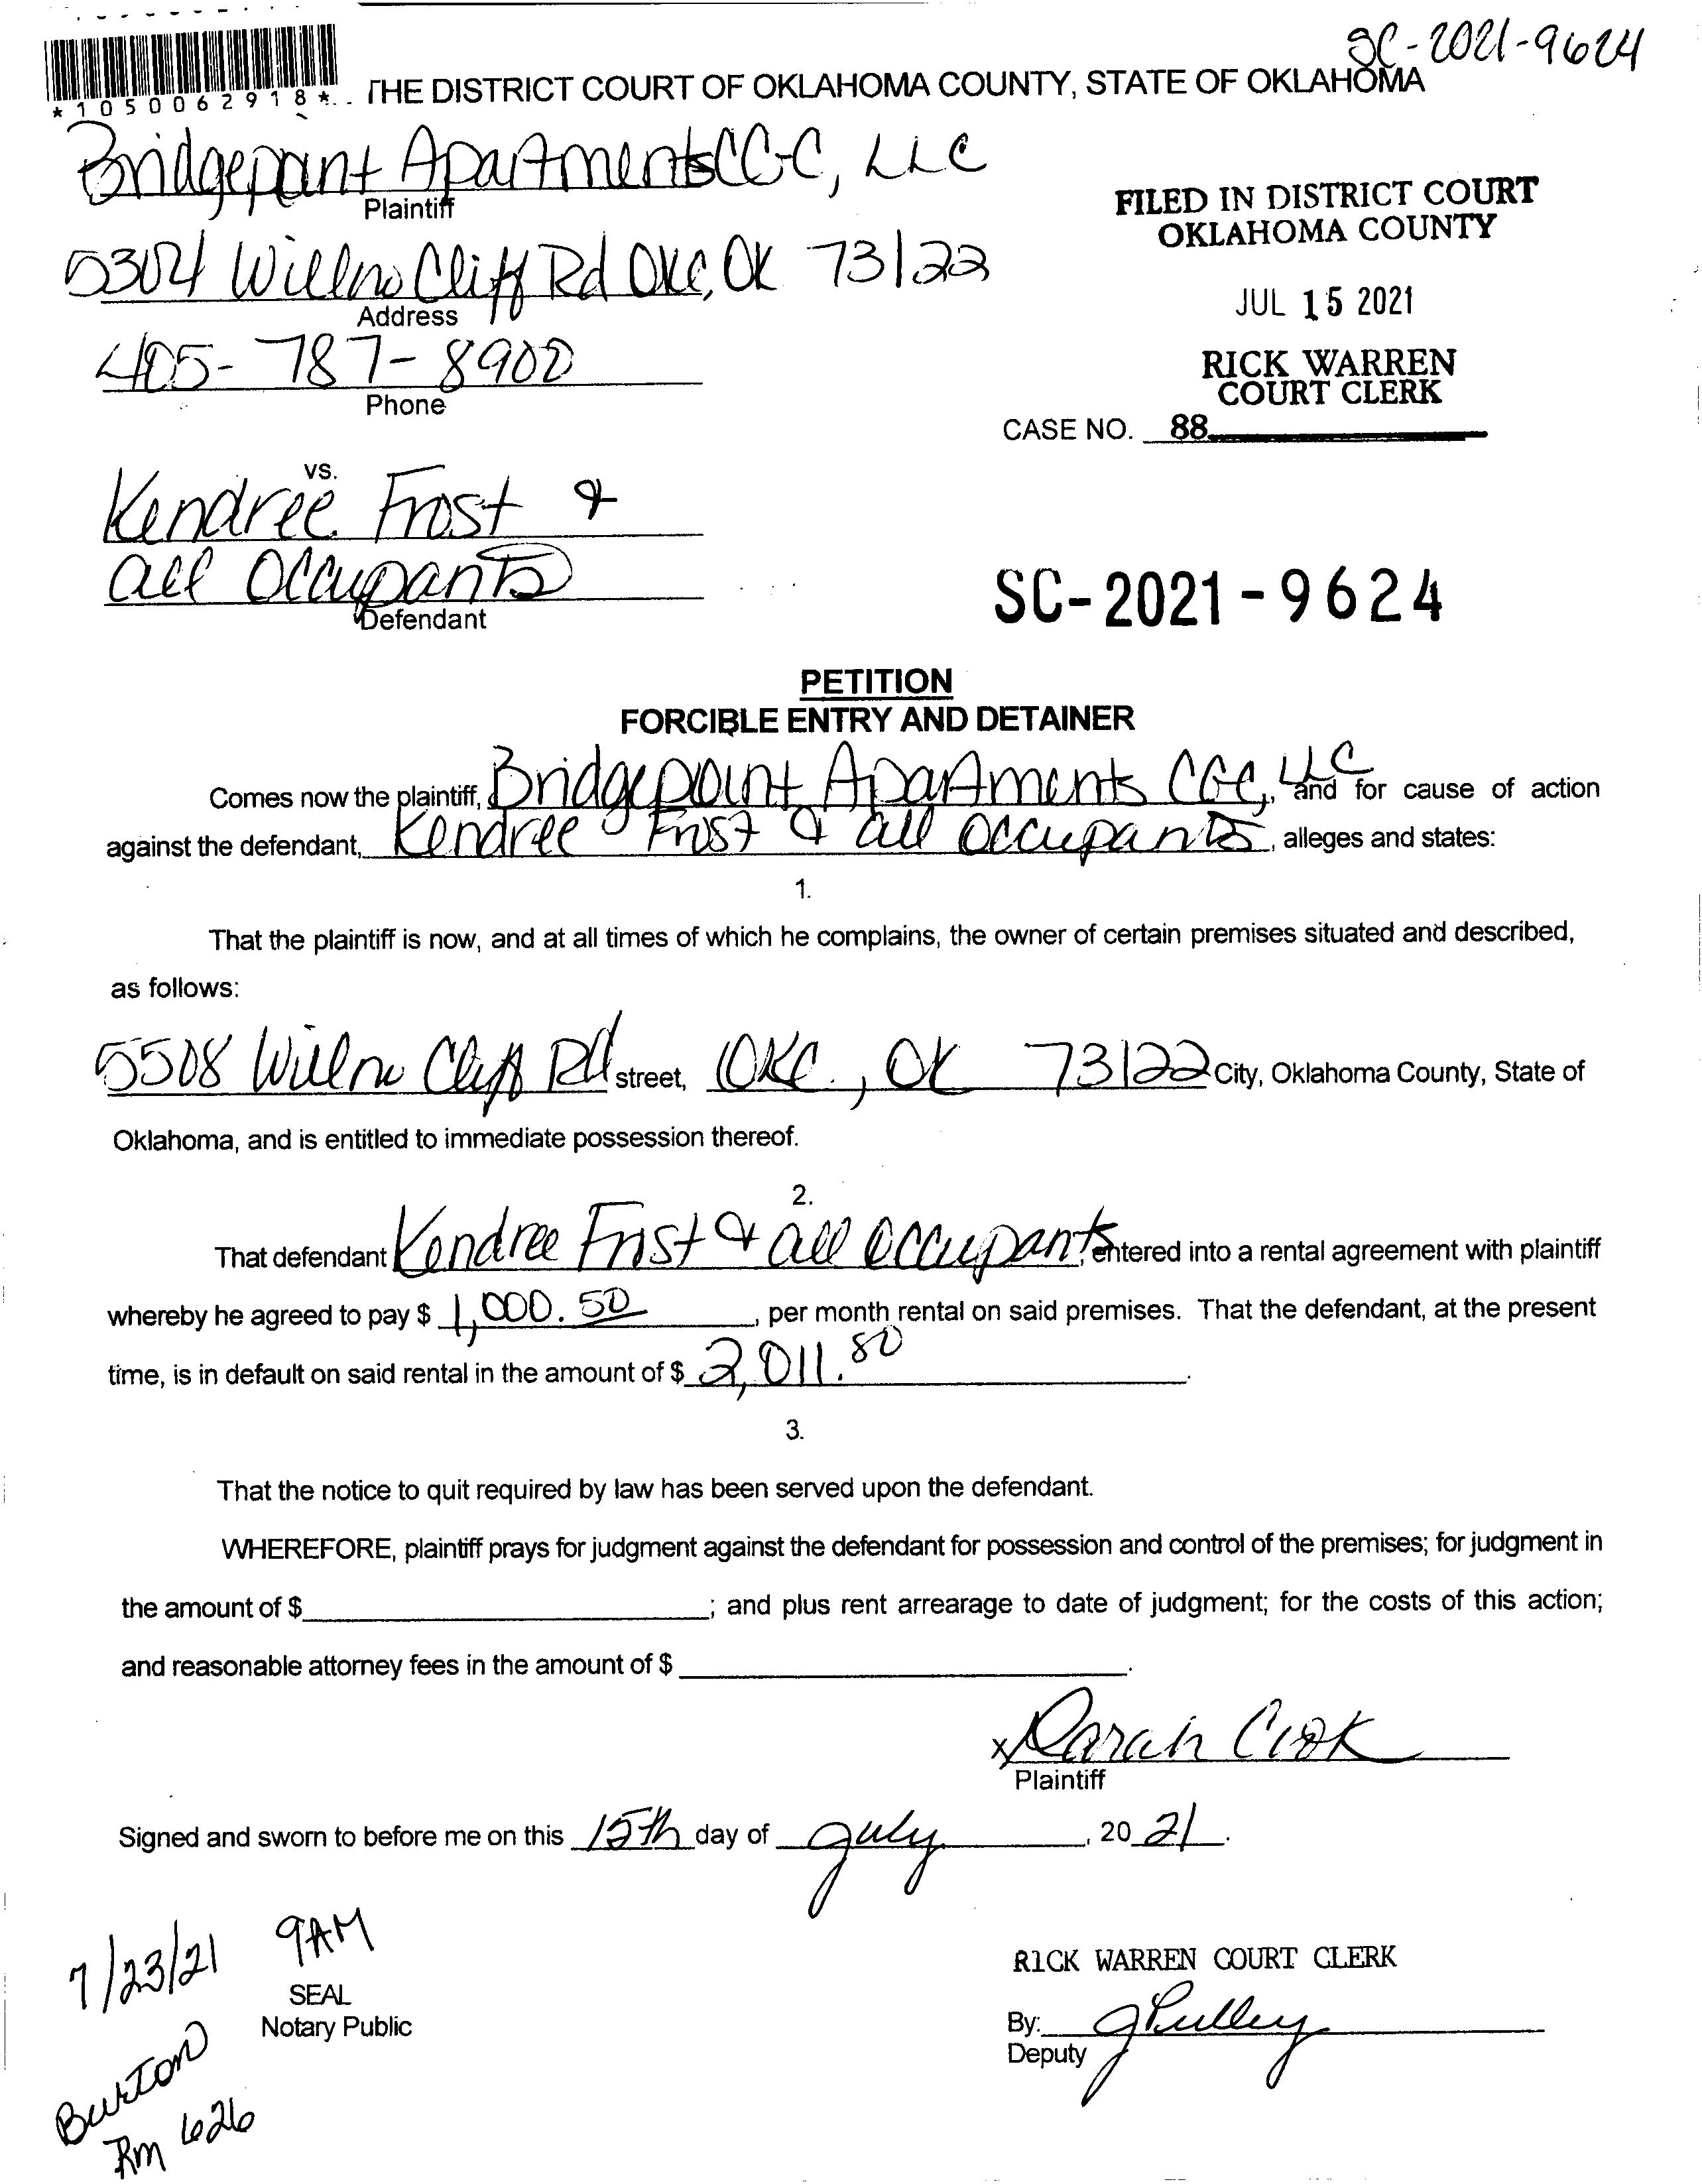 SC-2021-9624
*1050062918*
THE DISTRICT COURT OF OKLAHOMA COUNTY, STATE OF OKLAHOMA
Bridgepoint Apartments CGC, LLC
Plaintiff
FILED IN DISTRICT COURT
OKLAHOMA COUNTY
5304 Willow Cliff Rd OKC, OK 73122
Address
JUL 15 2021
405-787-8900
Phone
RICK WARREN
COURT CLERK
CASE NO. 88
vs.
Kendree Frost &
all Occupants
Defendant
SC-2021-9624
PETITION
FORCIBLE ENTRY AND DETAINER
Comes now the plaintiff, Bridgepoint Apartments CGC, LLC, and for cause of action
against the defendant, Kendree Frost & all Occupants, alleges and states:
1.
That the plaintiff is now, and at all times of which he complains, the owner of certain premises situated and described,
as follows:
5508 Willow Cliff Rd street, OKC, OK 73122 City, Oklahoma County, State of
Oklahoma, and is entitled to immediate possession thereof.
2.
That defendant Kendree Frost & all Occupants, entered into a rental agreement with plaintiff
whereby he agreed to pay $ 1,000.50, per month rental on said premises. That the defendant, at the present
time, is in default on said rental in the amount of $ 2,011.80.
3.
That the notice to quit required by law has been served upon the defendant.
WHEREFORE, plaintiff prays for judgment against the defendant for possession and control of the premises; for judgment in
the amount of $ ; and plus rent arrearage to date of judgment; for the costs of this action;
and reasonable attorney fees in the amount of $ .
x Sarah Cook
Plaintiff
Signed and sworn to before me on this 15th day of July, 20 21.
7/23/21 9AM
SEAL
Notary Public
Burton
Rm 626
RICK WARREN COURT CLERK
By: J Pulley
Deputy